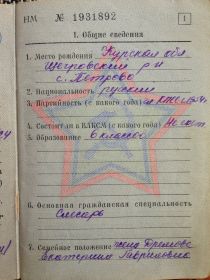 НМ № 1931892
1
I. Общие сведения
1. Место рождения Курская обл
Щигровский р-н
с. Петрово
2. Национальность русский
3. Партийность (с какого года)
4. Состоит ли в ВЛКСМ (с какого года) Не сост
5. Образование 6 классов
6. Основная гражданская специальность
Слесарь
7. Семейное положение жена
Екатерина Гавриловна